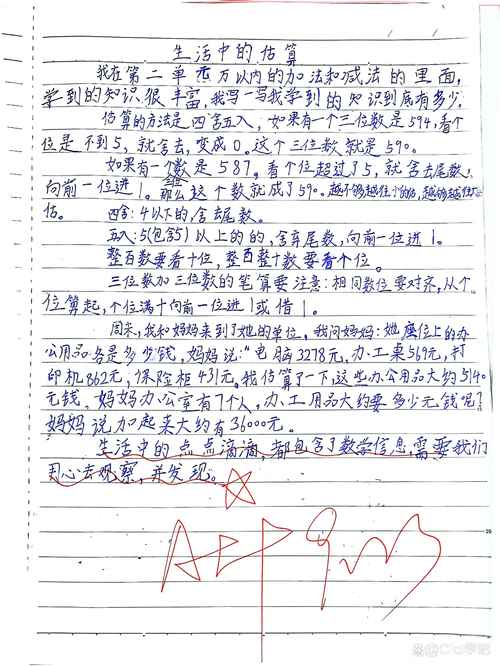 生活中的估算
我在第二单元万以内的加法和减法的里面,
学到的知识很丰富,我写一写我学到的知识到底有多少.
估算的方法是四舍五入,如果有一个三位数是594,看个
位是不到5,就舍去,变成0。这个三位数就是590.
如果有一个数是587。看个位超过了5,就舍去尾数,
向前一位进1。那么这个数就成了590.
估.
四舍:4以下的,舍去尾数。
五入:5(包含5)以上的的,舍弃尾数,向前一位进1。
整百数要看十位,整百整十数要看个位。
三位数加三位数的笔算要注意:相同数位要对齐,从个
位算起,个位满十向前一位进1或借1。
周末,我和妈妈来到了她的单位,我问妈妈:她座位上的办
公用品各是多少钱,妈妈说:“电脑3278元,办工桌569元,打
印机862元,保险柜431元。我估算了一下,这些办公用品大约5140
元钱,妈妈办公室有7个人,办工用品大约要多少元钱呢?
妈妈说,加起来大约有36000元。
生活中的点点滴滴,都包含了数学信息,需要我们
用心去观察,并发现。
A++